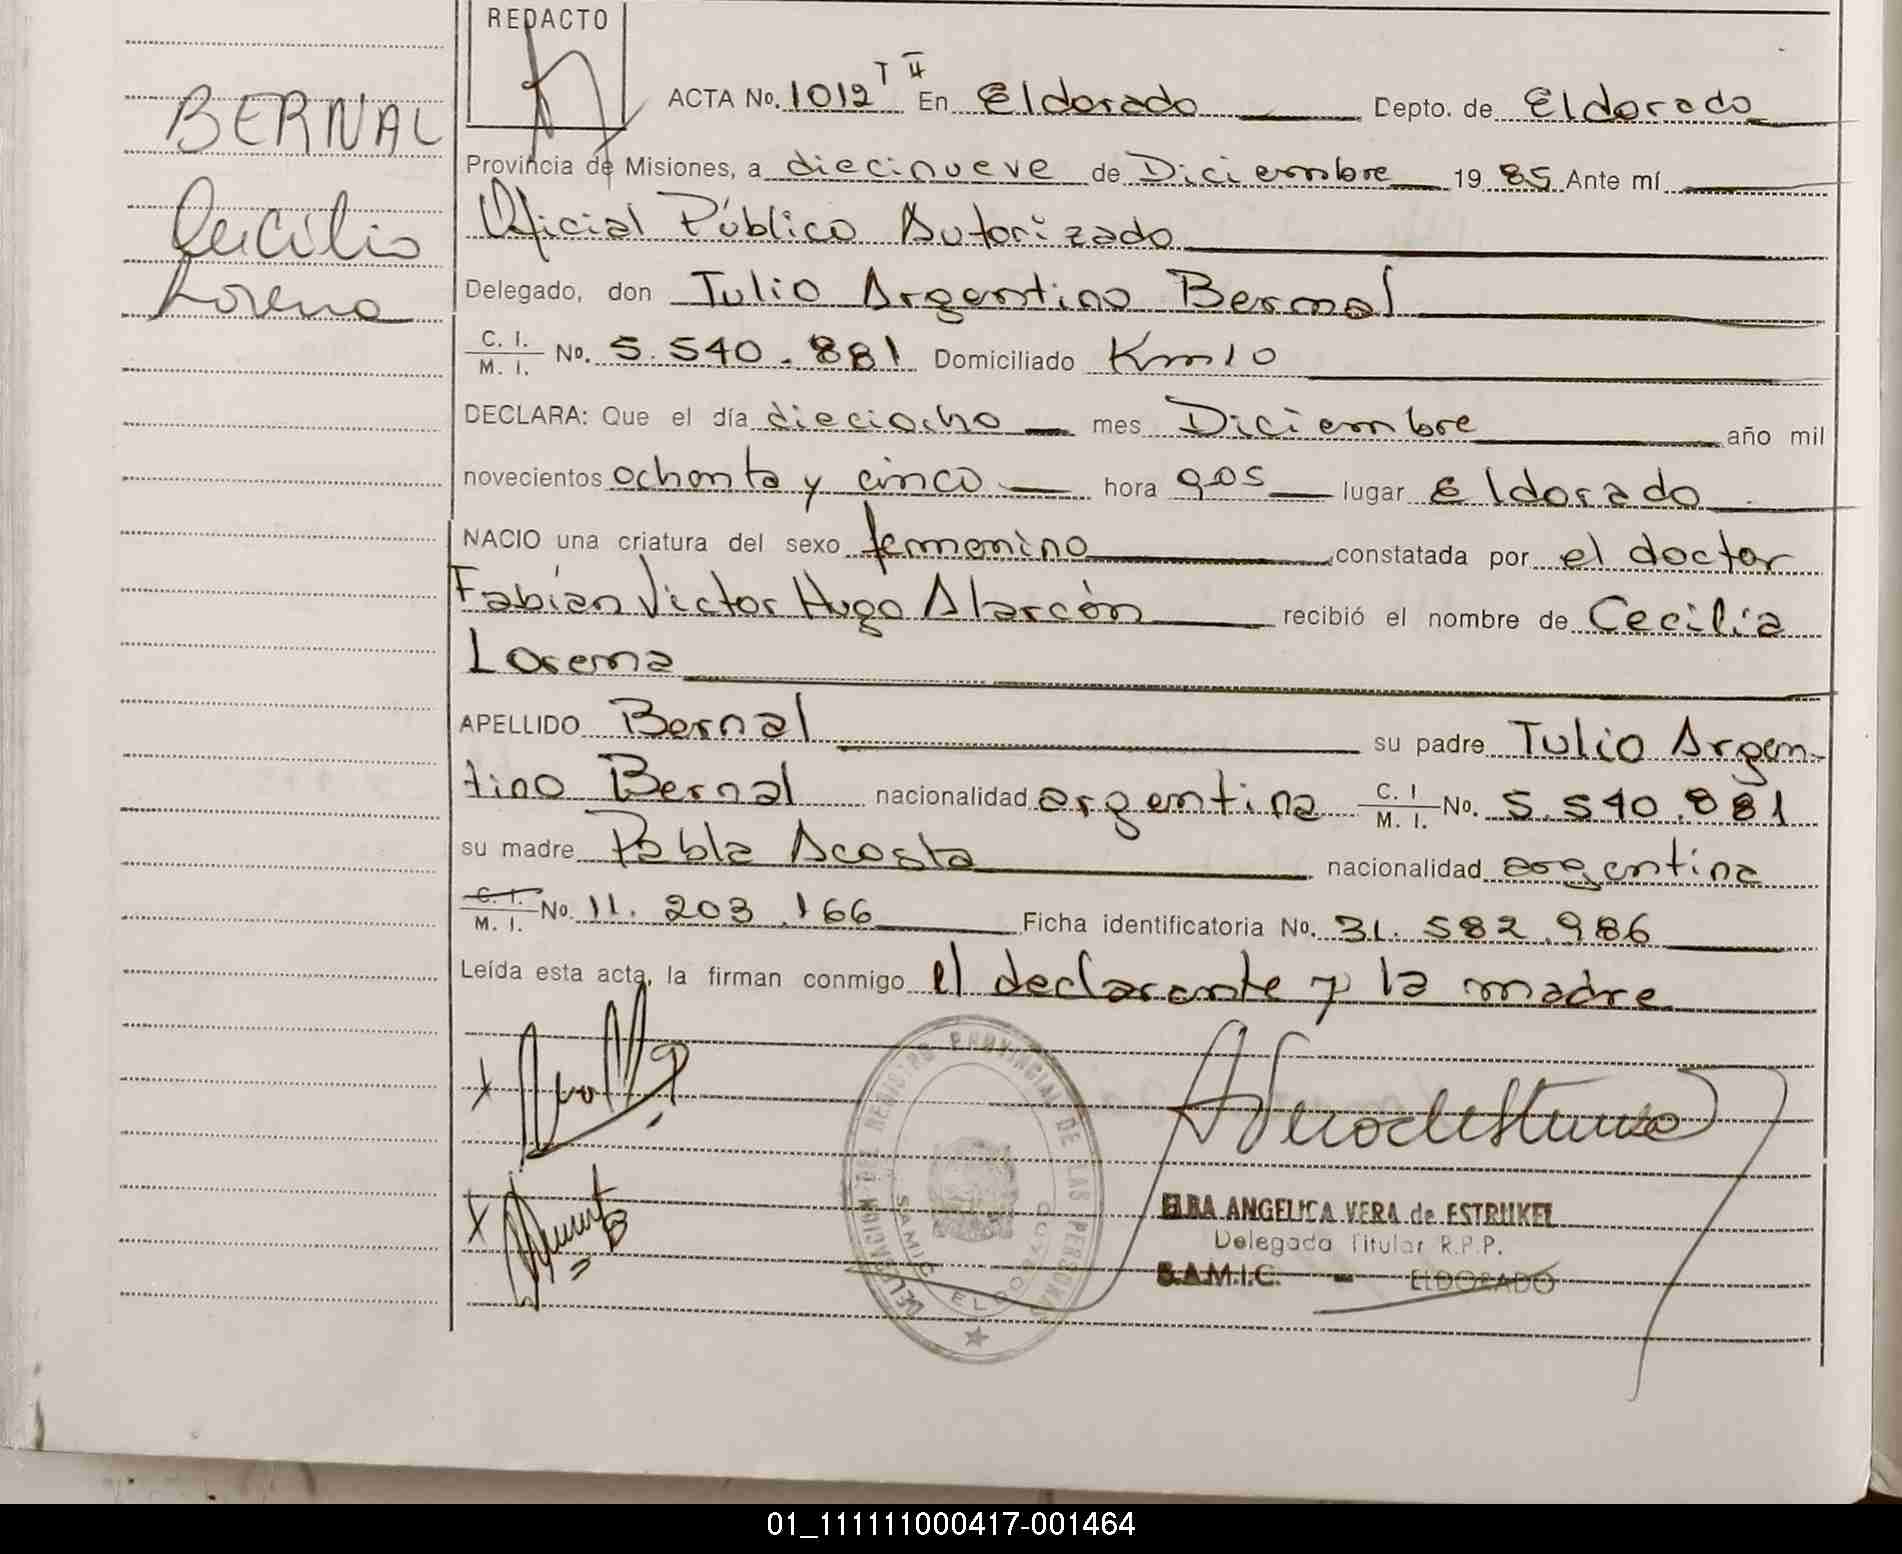 REDACTO
BERNAL
Cecilia
Lorena
ACTA No. 1012 T II En Eldorado Depto. de Eldorado
Provincia de Misiones, a diecinueve de Diciembre 19 85 Ante mí
Oficial Público Autorizado
Delegado, don Tulio Argentino Bernal
C. I. / M. I. No. 5.540.881 Domiciliado Km 10
DECLARA: Que el día dieciocho mes Diciembre año mil
novecientos ochenta y cinco hora 9.05 lugar Eldorado
NACIO una criatura del sexo femenino constatada por el doctor
Fabián Victor Hugo Alarcón recibió el nombre de Cecilia
Lorena
APELLIDO Bernal su padre Tulio Argen-
tino Bernal nacionalidad argentina C. I / M. I. No. 5.540.881
su madre Pabla Acosta nacionalidad argentina
C. I. / M. I. No. 11.203.166 Ficha identificatoria No. 31.582.986
Leída esta acta, la firman conmigo el declarante y la madre
DELEGACION DEL REGISTRO PROVINCIAL DE LAS PERSONAS
SAMIC ELDORADO
ELBA ANGELICA VERA de ESTRUKEL
Delegada Titular R.P.P.
S.A.M.I.C. - ELDORADO
01_111111000417-001464